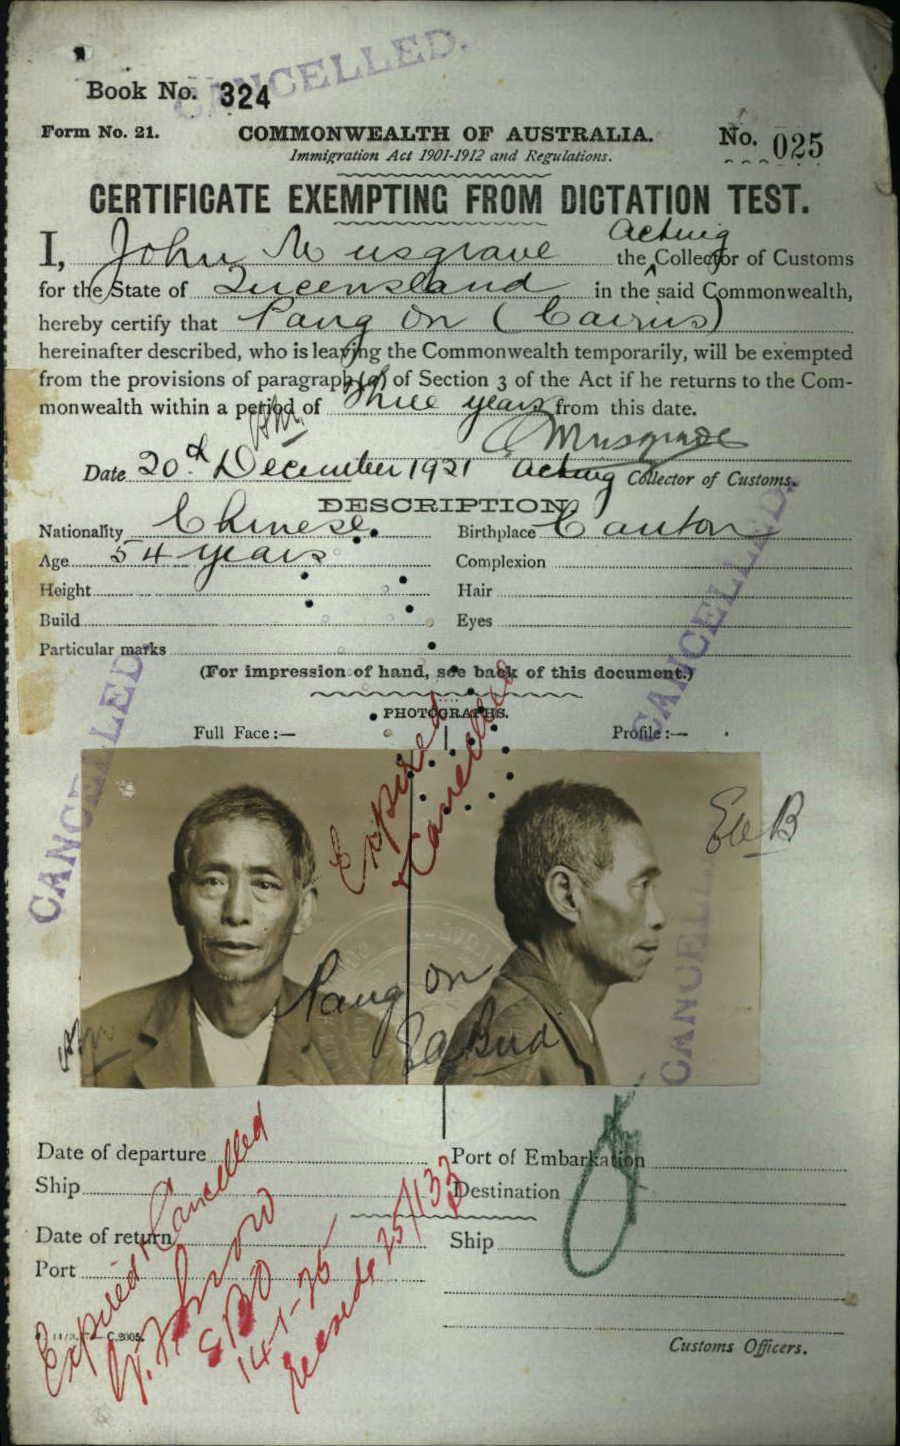 CANCELLED.
Book No. 324
Form No. 21. COMMONWEALTH OF AUSTRALIA. No. 025
Immigration Act 1901-1912 and Regulations.
CERTIFICATE EXEMPTING FROM DICTATION TEST.
I, John Musgrave the Acting Collector of Customs
for the State of Queensland in the said Commonwealth,
hereby certify that Pang On (Cairns)
hereinafter described, who is leaving the Commonwealth temporarily, will be exempted
from the provisions of paragraph (a) of Section 3 of the Act if he returns to the Com-
monwealth within a period of three years from this date.
Musgrave
Date 20th December 1921 Acting Collector of Customs.
DESCRIPTION.
Nationality Chinese. Birthplace Canton
Age 54 years Complexion
Height Hair
Build Eyes
Particular marks
(For impression of hand, see back of this document.)
PHOTOGRAPHS.
Full Face :— Profile :—
CANCELLED.
CANCELLED.
CANCELLED
Expired
& Cancelled
Pang On
Date of departure Port of Embarkation
Ship Destination
Date of return Ship
Port
Expired & Cancelled
14-1-26
C.2005.
Customs Officers.